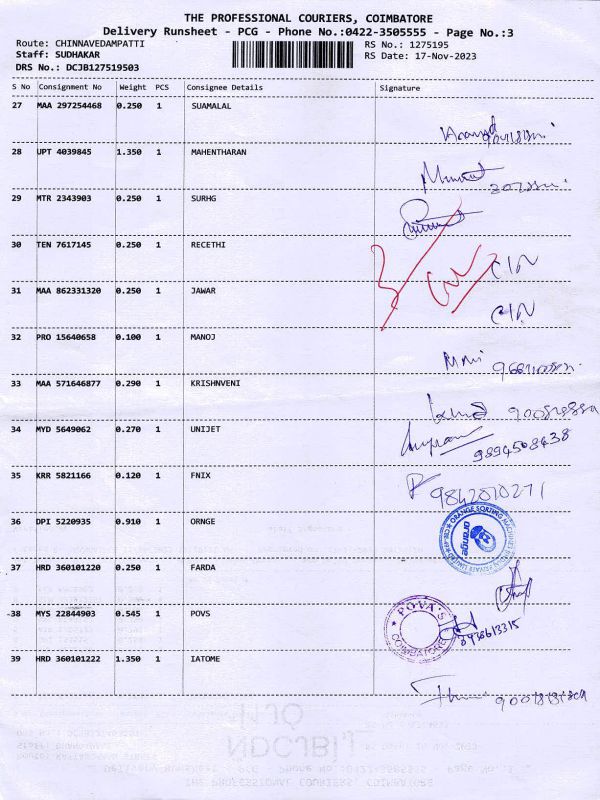 THE PROFESSIONAL COURIERS, COIMBATORE
Delivery Runsheet - PCG - Phone No.:0422-3505555 - Page No.:3
Route: CHINNAVEDAMPATTI RS No.: 1275195
Staff: SUDHAKAR RS Date: 17-Nov-2023
DRS No.: DCJB127519503
S No Consignment No Weight PCS Consignee Details Signature
27 MAA 297254468 0.250 1 SUAMALAL
28 UPT 4039845 1.350 1 MAHENTHARAN
29 MTR 2343903 0.250 1 SURHG
30 TEN 7617145 0.250 1 RECETHI
31 MAA 862331320 0.250 1 JAWAR
32 PRO 15640658 0.100 1 MANOJ
33 MAA 571646877 0.290 1 KRISHNVENI
34 MYD 5649062 0.270 1 UNIJET
9894508438
35 KRR 5821166 0.120 1 FNIX
9842010271
36 DPI 5220935 0.910 1 ORNGE
ORANGE SORTING MACHINES
orange
37 HRD 360101220 0.250 1 FARDA
-38 MYS 22844903 0.545 1 POVS
POVA'S
COIMBATORE
39 HRD 360101222 1.350 1 IATOME